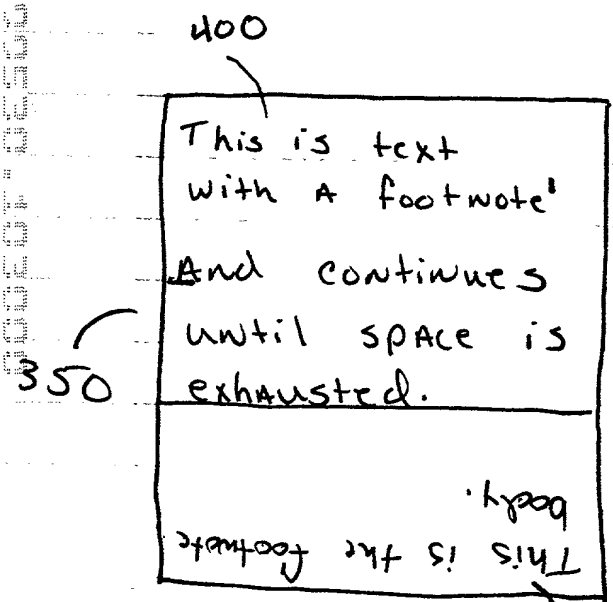 400
This is text
with A footnote1
And continues
until space is
350
exhausted.
This is the footnote
body.